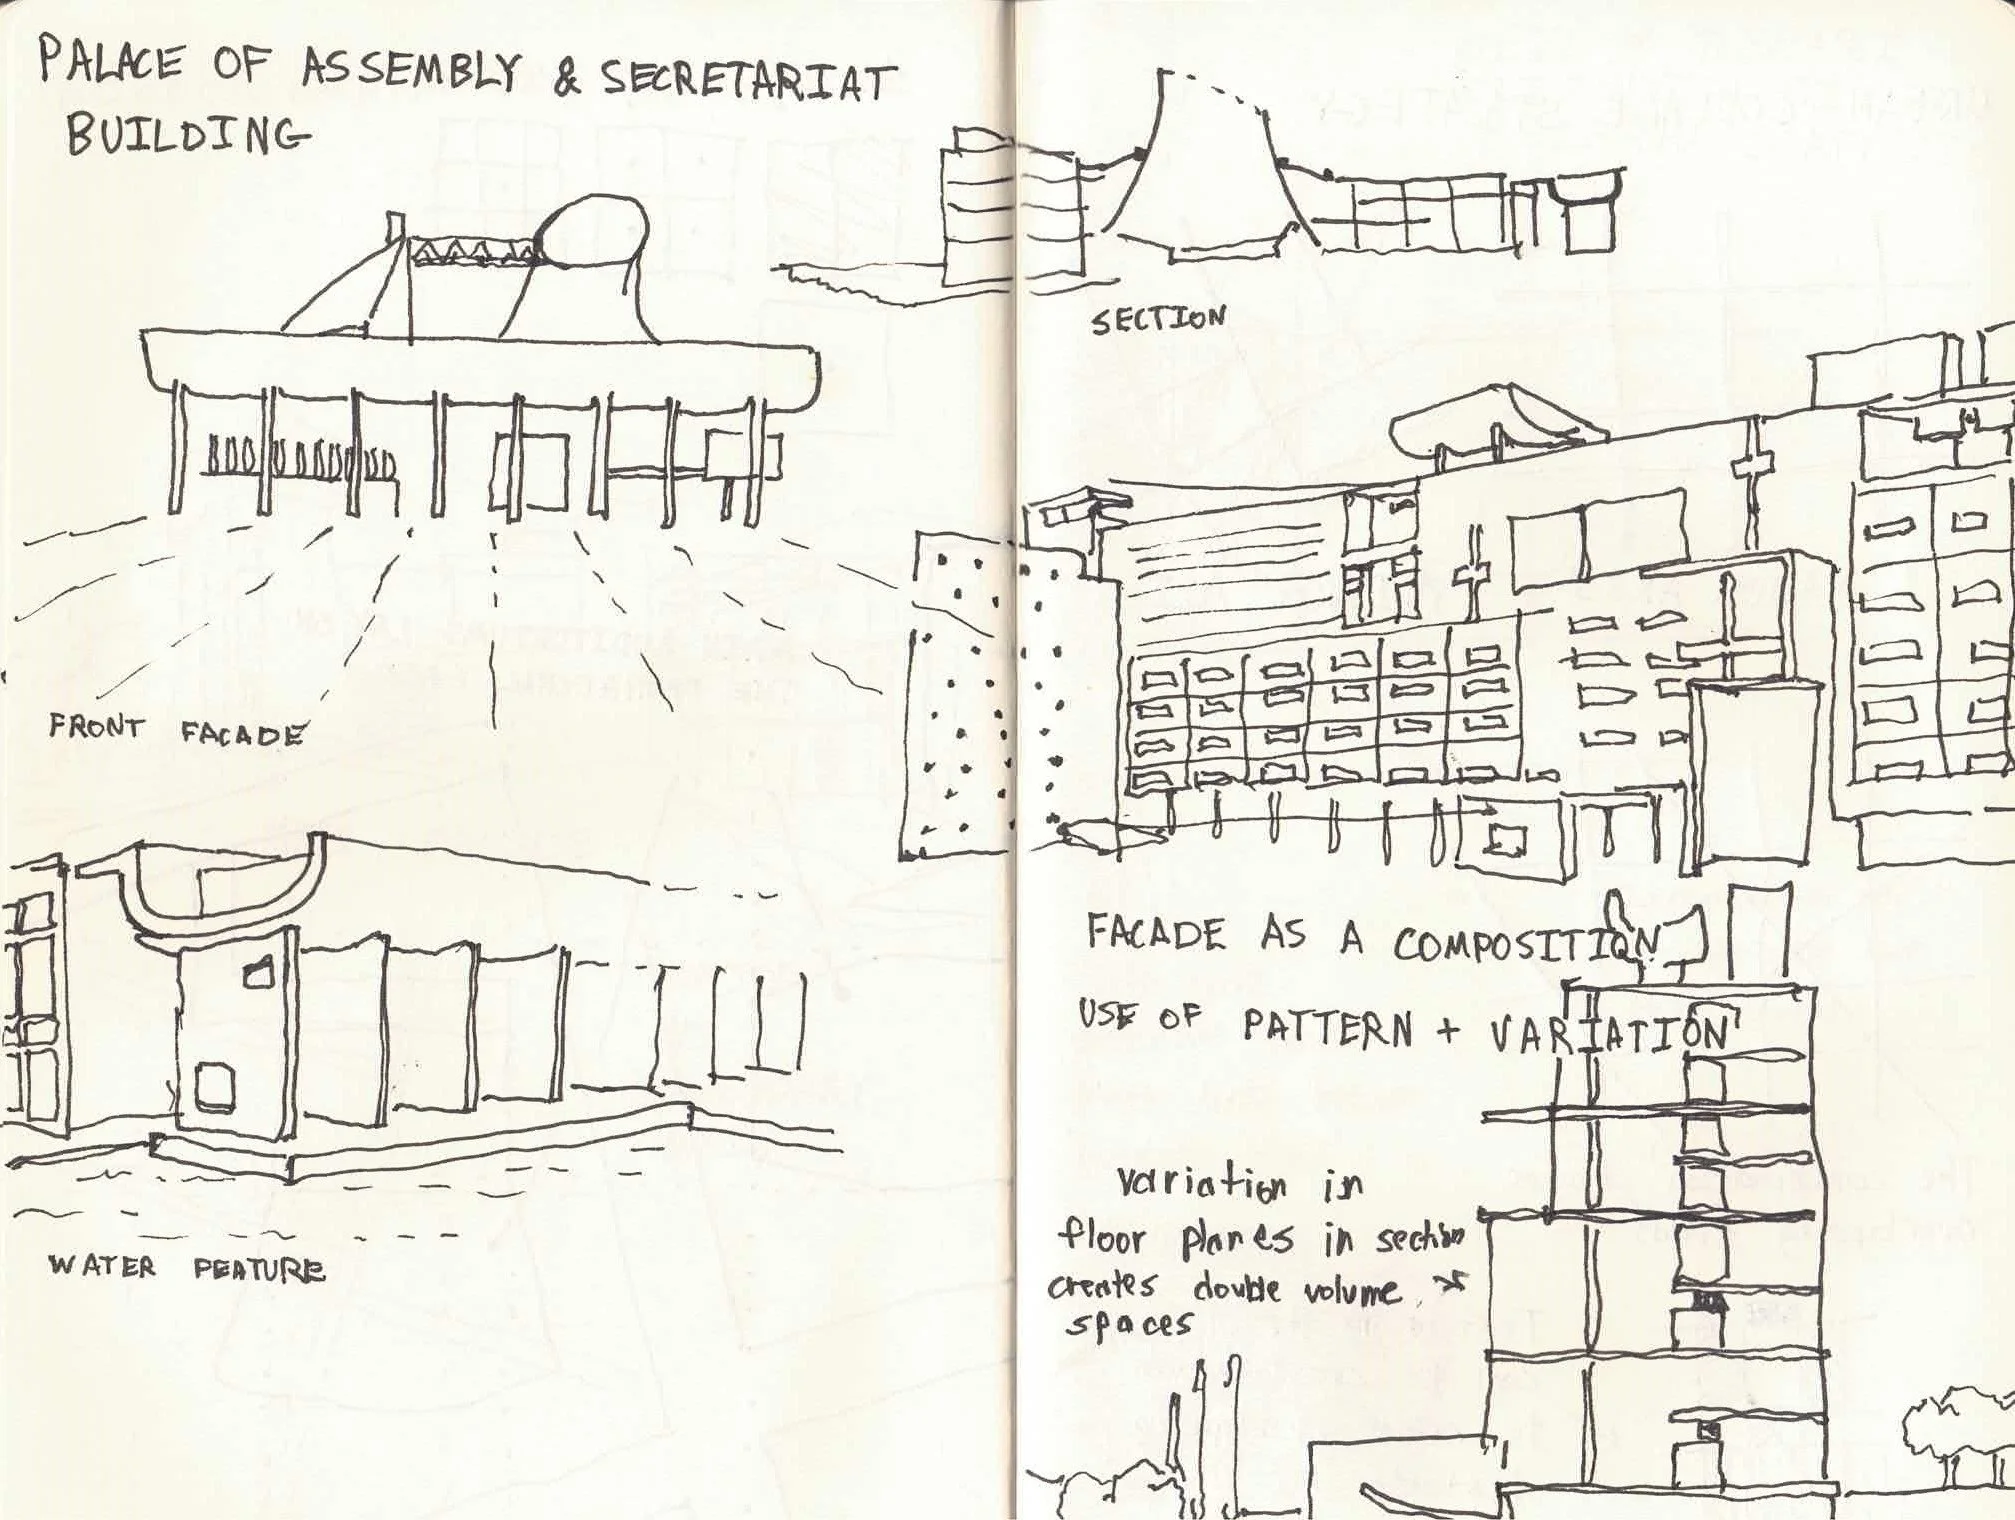 PALACE OF ASSEMBLY & SECRETARIAT
BUILDING
FRONT FACADE
WATER FEATURE
SECTION
FACADE AS A COMPOSITION
USE OF PATTERN + VARIATION
variation in
floor planes in section
creates double volume *
spaces